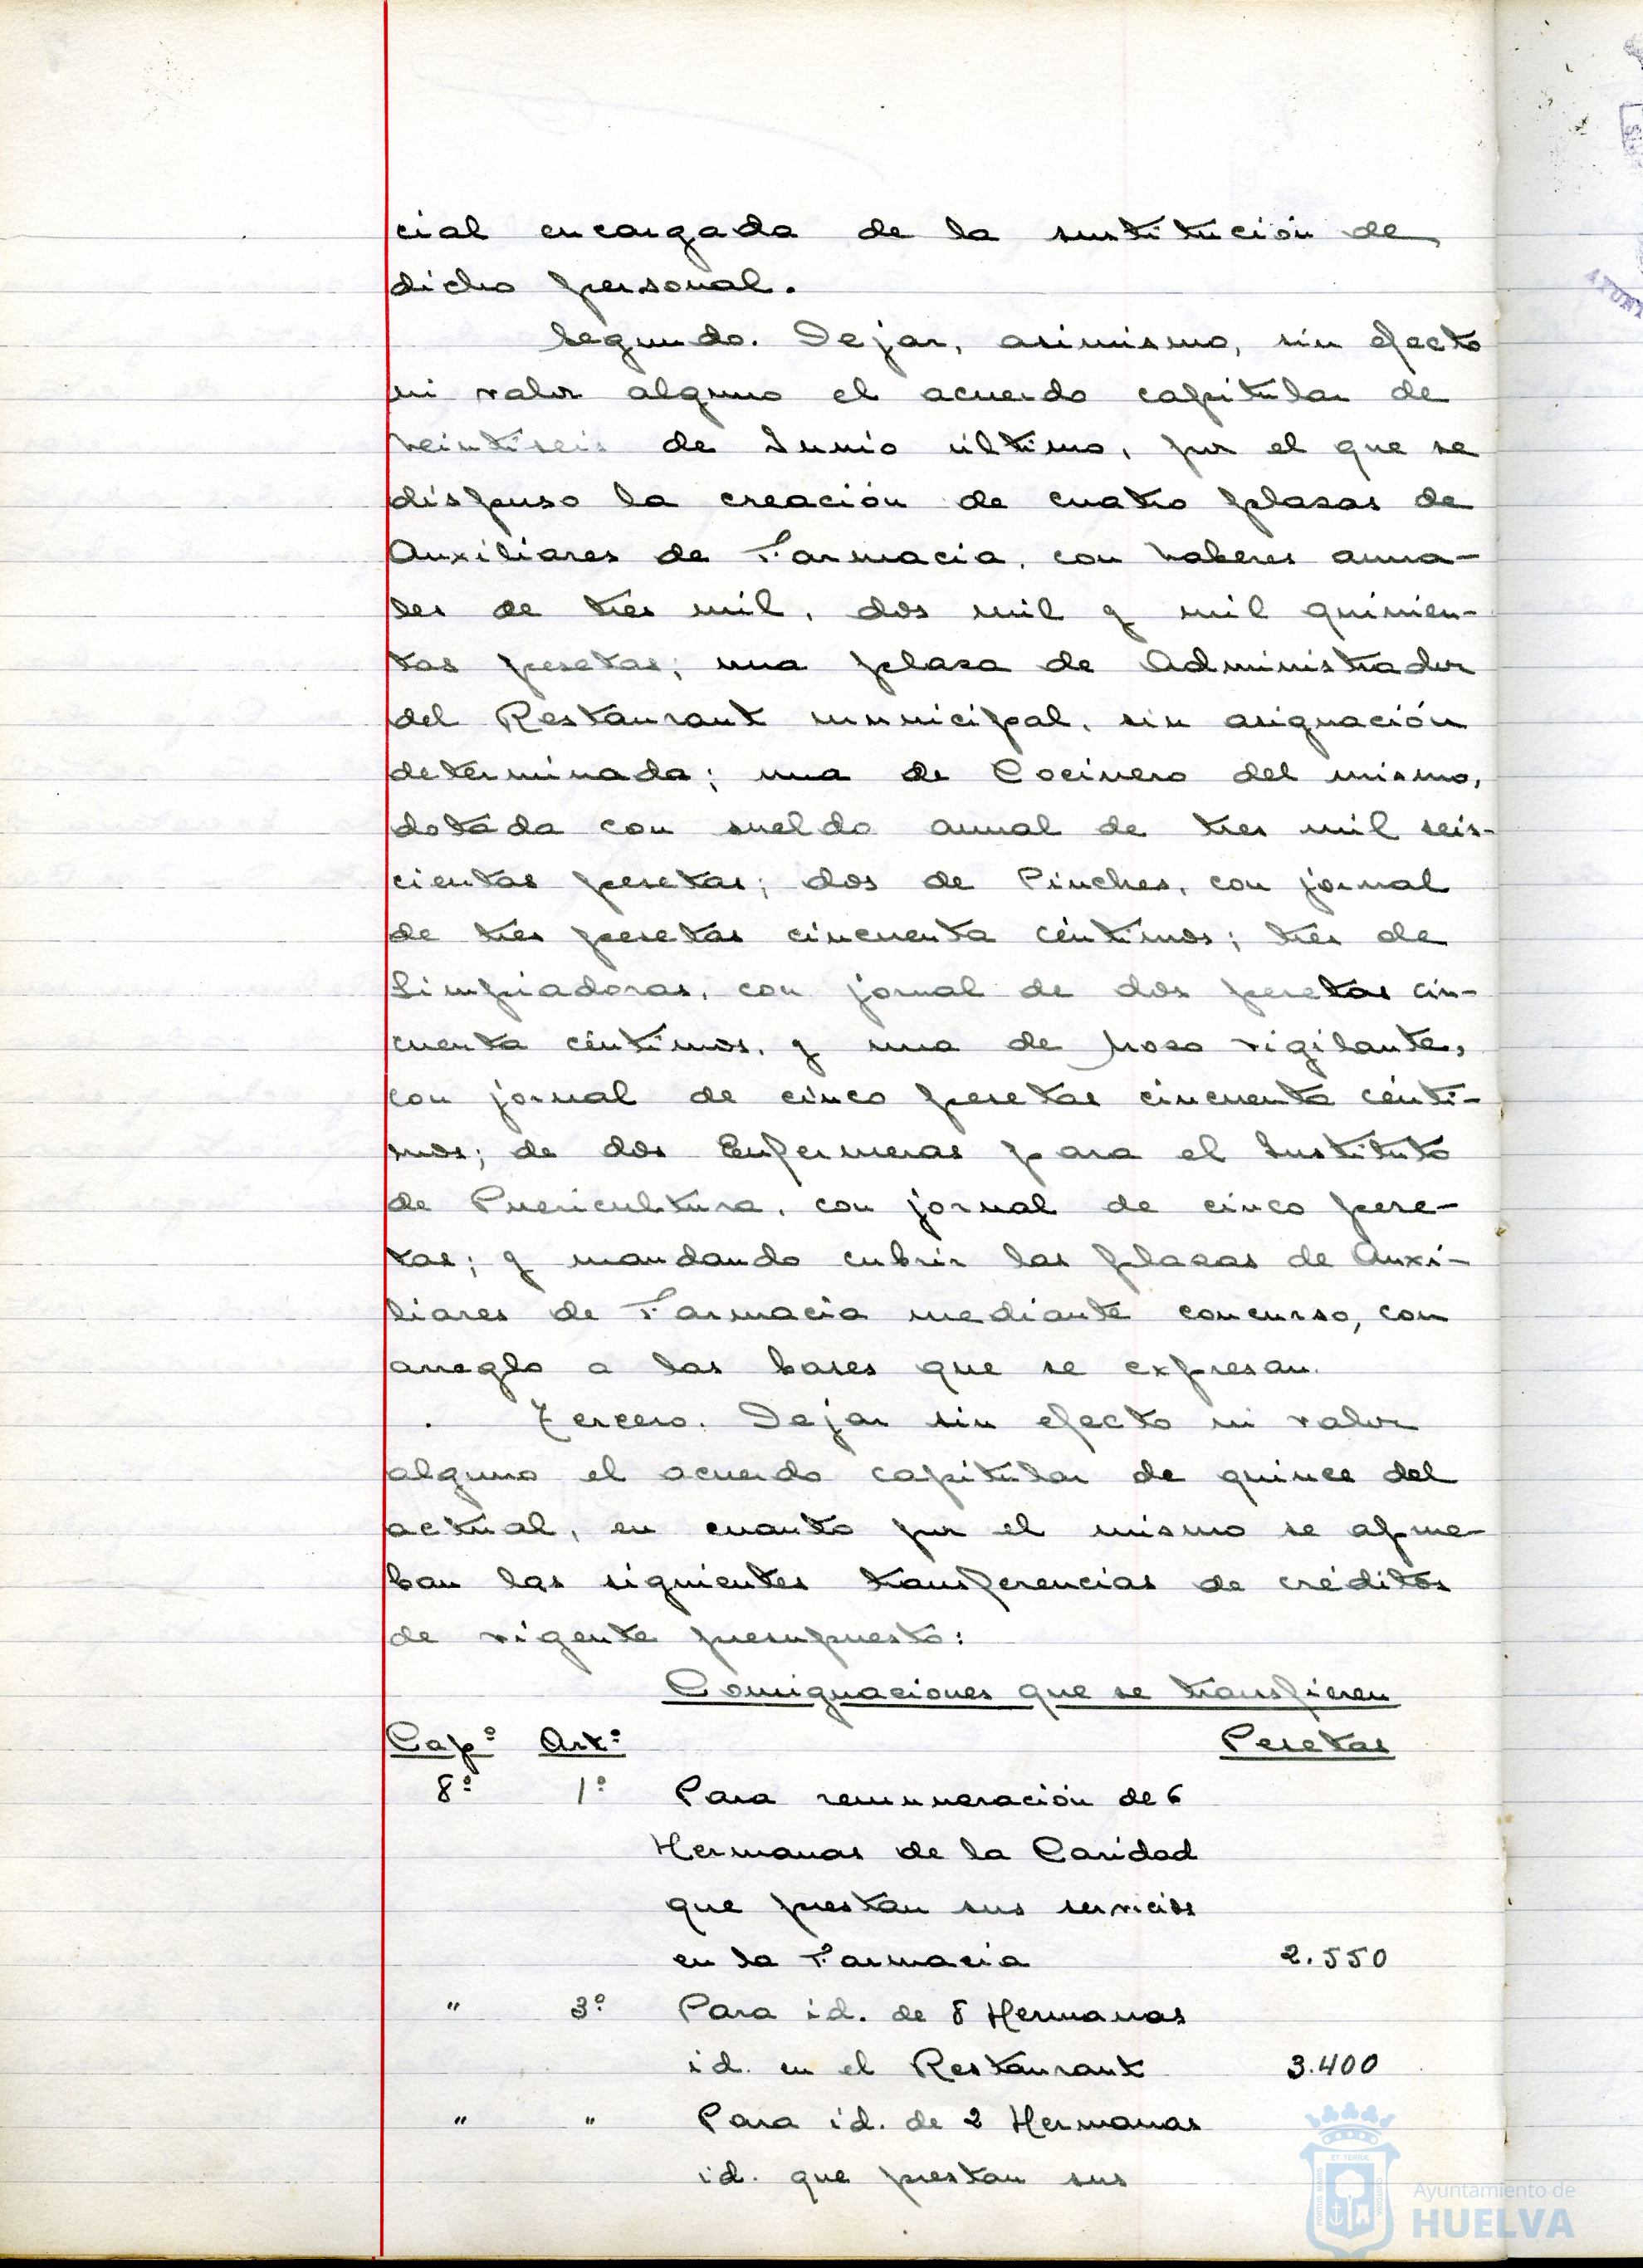 cial encargada de la sustitución de
dicho personal.
Segundo. Dejar, asimismo, sin efecto
ni valor alguno el acuerdo capitular de
veintiseis de Junio último, por el que se
dispuso la creación de cuatro plazas de
Auxiliares de Farmacia, con haberes anua-
les de tres mil, dos mil y mil quinien-
tas pesetas; una plaza de Administrador
del Restaurant municipal, sin asignación
determinada; una de Cocinero del mismo,
dotada con sueldo anual de tres mil seis-
cientas pesetas; dos de Pinches, con jornal
de tres pesetas cincuenta céntimos; tres de
Limpiadoras, con jornal de dos pesetas cin-
cuenta céntimos, y una de Mozo vigilante,
con jornal de cinco pesetas cincuenta cénti-
mos; de dos Enfermeras para el Instituto
de Puericultura, con jornal de cinco pese-
tas; y mandando cubrir las plazas de Auxi-
liares de Farmacia mediante concurso, con
arreglo a las bases que se expresan.
Tercero. Dejar sin efecto ni valor
alguno el acuerdo capitular de quince del
actual, en cuanto por el mismo se aprue-
ban las siguientes transferencias de créditos
de vigente presupuesto:
Consignaciones que se transfieren
Capº Artº Pesetas
8º 1º Para remuneración de 6
Hermanas de la Caridad
que prestan sus servicios
en la Farmacia 2.550
" 3º Para id. de 8 Hermanas
id. en el Restaurant 3.400
" " Para id. de 2 Hermanas
id. que prestan sus
Ayuntamiento de
HUELVA